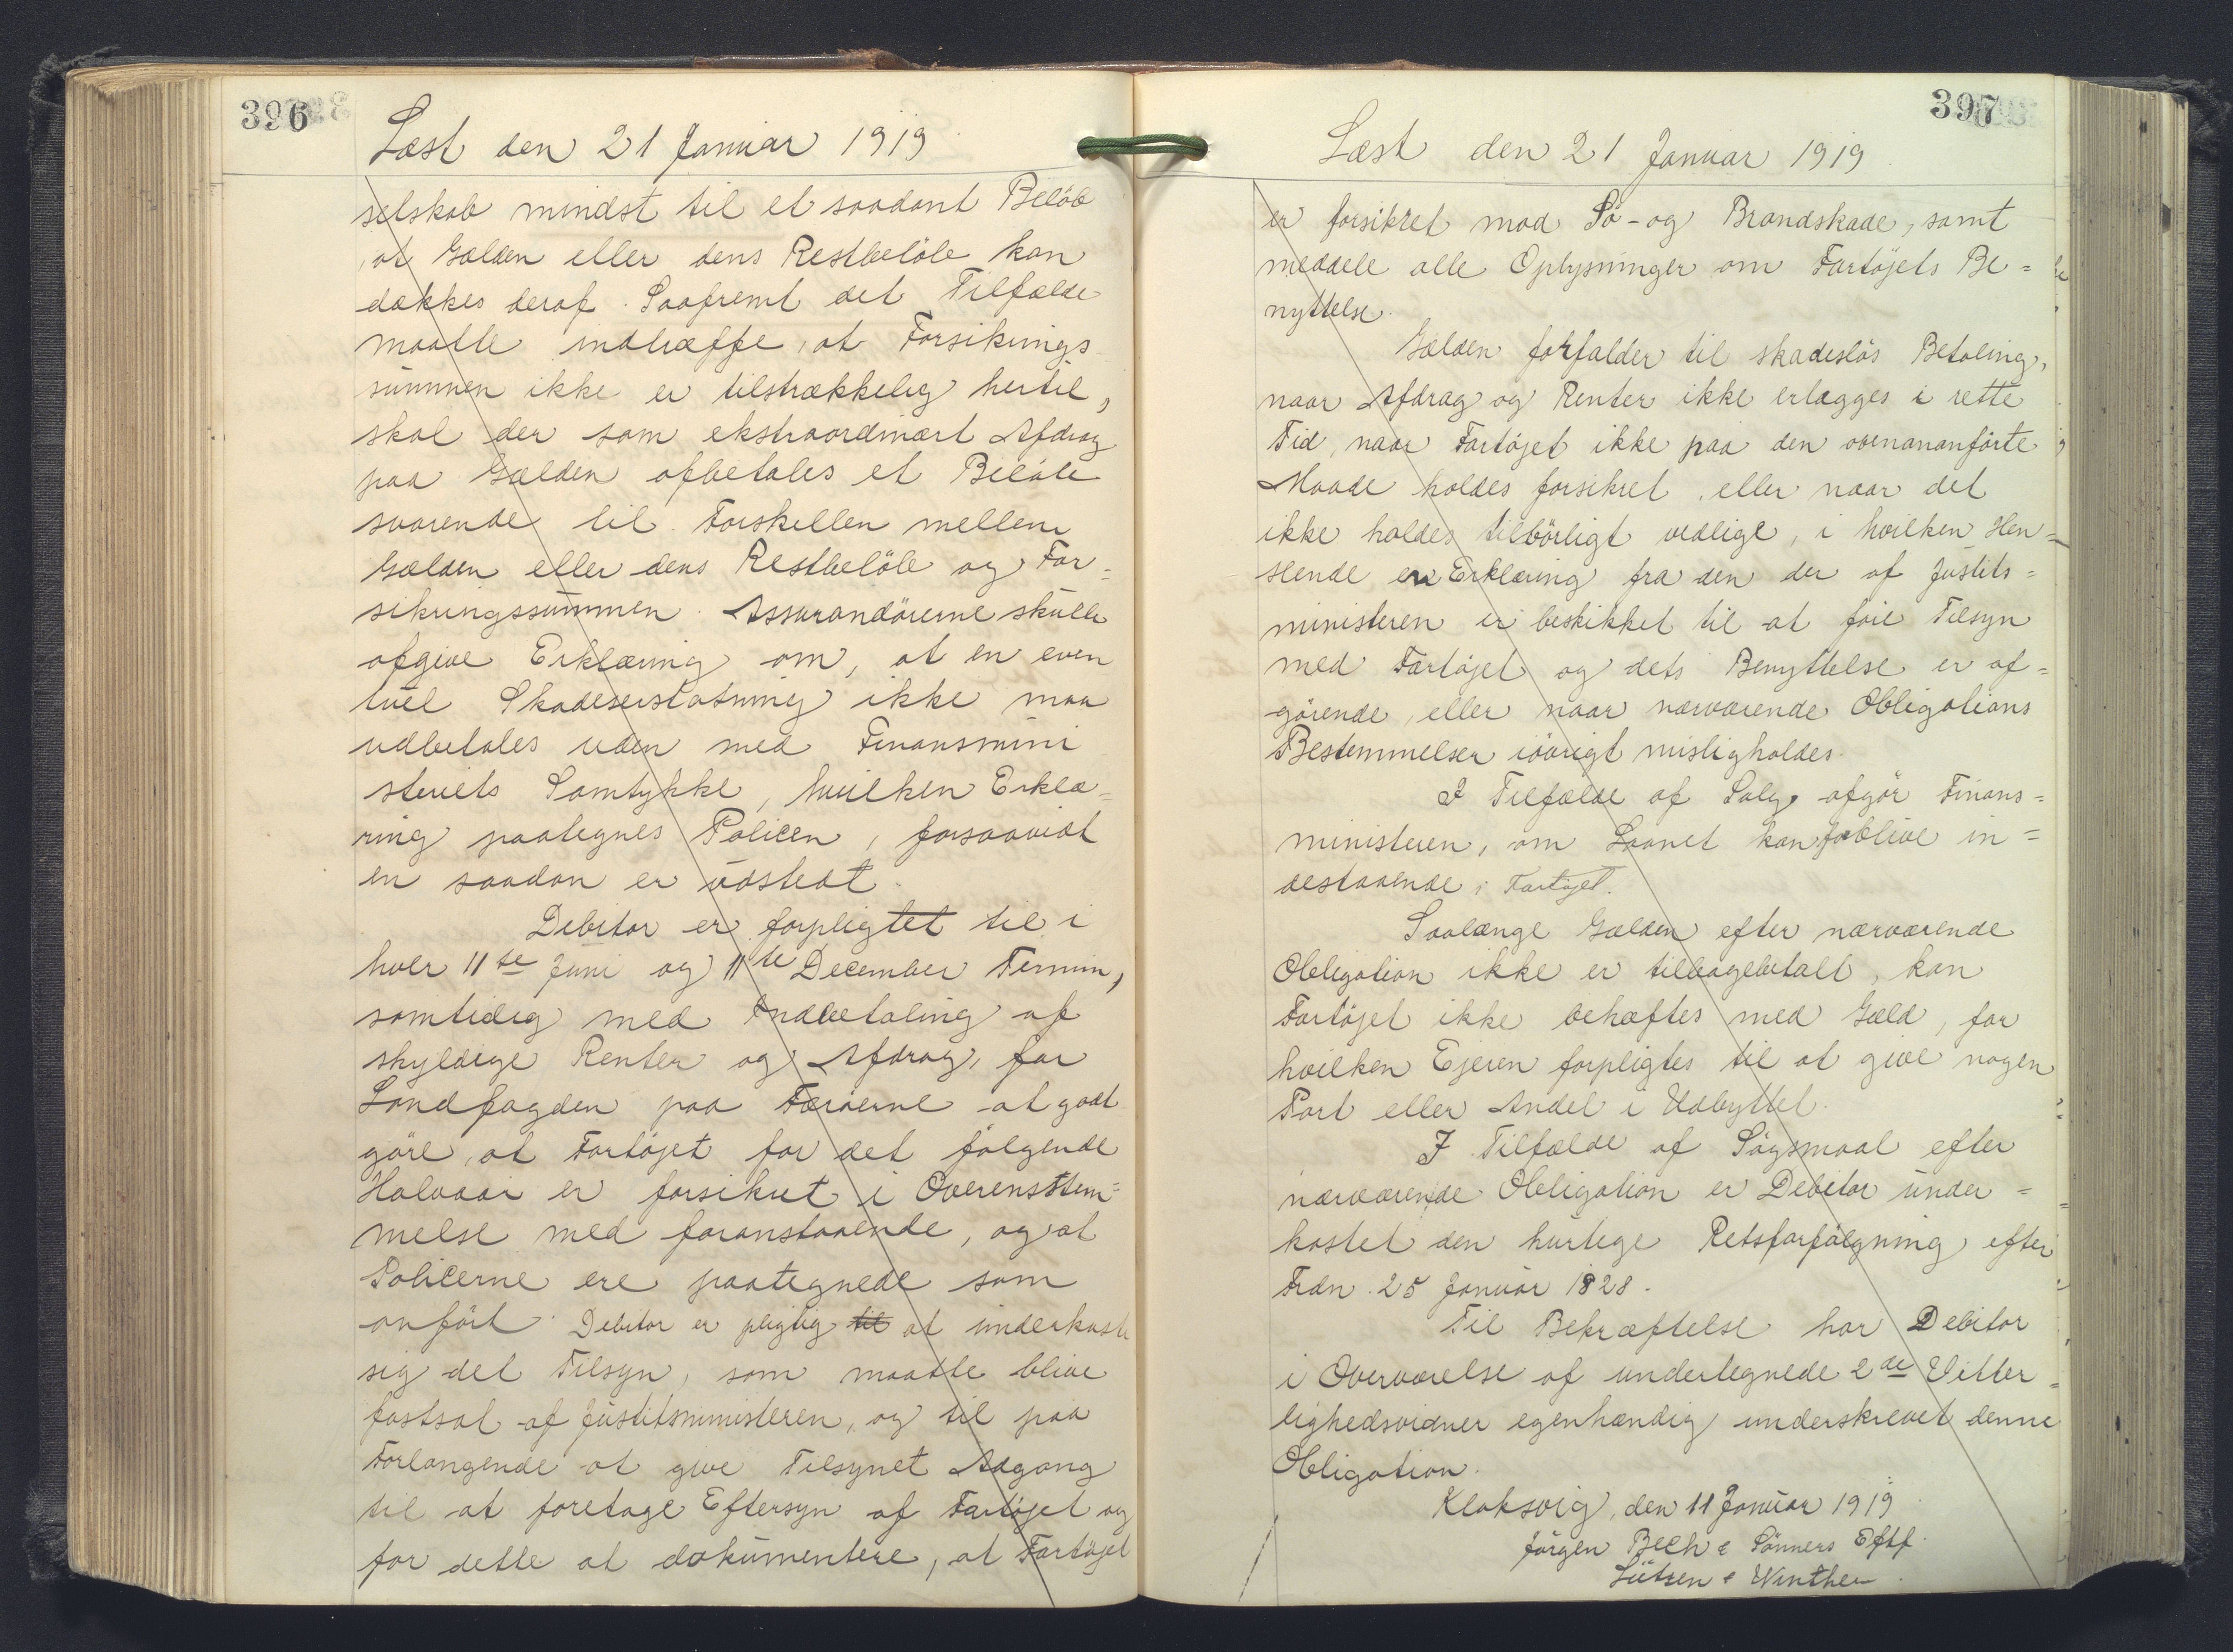 396
Læst den 21 Januar 1919
selskab mindst til et saadant Beløb
at Gælden eller dens Restbeløb kan
dækkes deraf. Saafremt det Tilfælde
maatte indtræffe, at Forsikrings
summen ikke er tilstrækkelig hertil,
skal der som ekstraordinært Afdrag
paa Gælden afbetales et Beløb
svarende til Forskellen mellem
Gælden eller dens Restbeløb og For=
sikringssummen. Assurandørerne skulle
afgive Erklæring om, at en even
tuel Skadeserstatning ikke maa
udbetales uden med Finansmini
steriets Samtykke, hvilken Erklæ=
ring paategnes Policen, forsaavidt
en saadan er udstedt.
Debitor er forpligtet til i
hver 11te Juni og 11te December Termin,
samtidig med Indbetaling af
skyldige Renter og Afdrag, for
Landfogden paa Færøerne at godt
gøre, at Fartøjet for det følgende
Halvaar er forsikret i Overensstem=
melse med foranstaaende, og at
Policerne ere paategnede som
anført. Debitor er pligtig til at underkaste
sig det Tilsyn, som maatte blive
fastsat af Justitsministeren, og til paa
Forlangende at give Tilsynet Adgang
til at foretage Eftersyn af Fartøjet og
for dette at dokumentere, at Fartøjet
397
Læst den 21 Januar 1919
er forsikret mod Sø- og Brandskade, samt
meddele alle Oplysninger om Fartøjets Be=
nyttelse.
Gælden forfalder til skadesløs Betaling,
naar Afdrag og Renter ikke erlægges i rette
Tid, naar Fartøjet ikke paa den ovenanførte
Maade holdes forsikret, eller naar det
ikke holdes tilbørligt vedlige, i hvilken Hen=
seende en Erklæring fra den der af Justits=
ministeren er beskikket til at føre Tilsyn
med Fartøjet og dets Benyttelse er af=
gørende, eller naar nærværende Obligations
Bestemmelser iøvrigt misligholdes.
I Tilfælde af Salg afgør Finans=
ministeren, om Laanet kan forblive in=
destaaende i Fartøjet.
Saalænge Gælden efter nærværende
Obligation ikke er tilbagebetalt, kan
Fartøjet ikke behæftes med Gæld, for
hvilken Ejeren forpligtes til at give nogen
Part eller Andel i Udbyttet.
I Tilfælde af Søgsmaal efter
nærværende Obligation er Debitor under=
kastet den hurtige Retsforfølgning efter
Frdn. 25 Januar 1828.
Til Bekræftelse har Debitor
i Overværelse af undertegnede 2de Vitter=
lighedsvidner egenhændig underskrevet denne
Obligation.
Klaksvig, den 11 Januar 1919
Jørgen Bech & Sønners Eftf.
Lützen & Winther